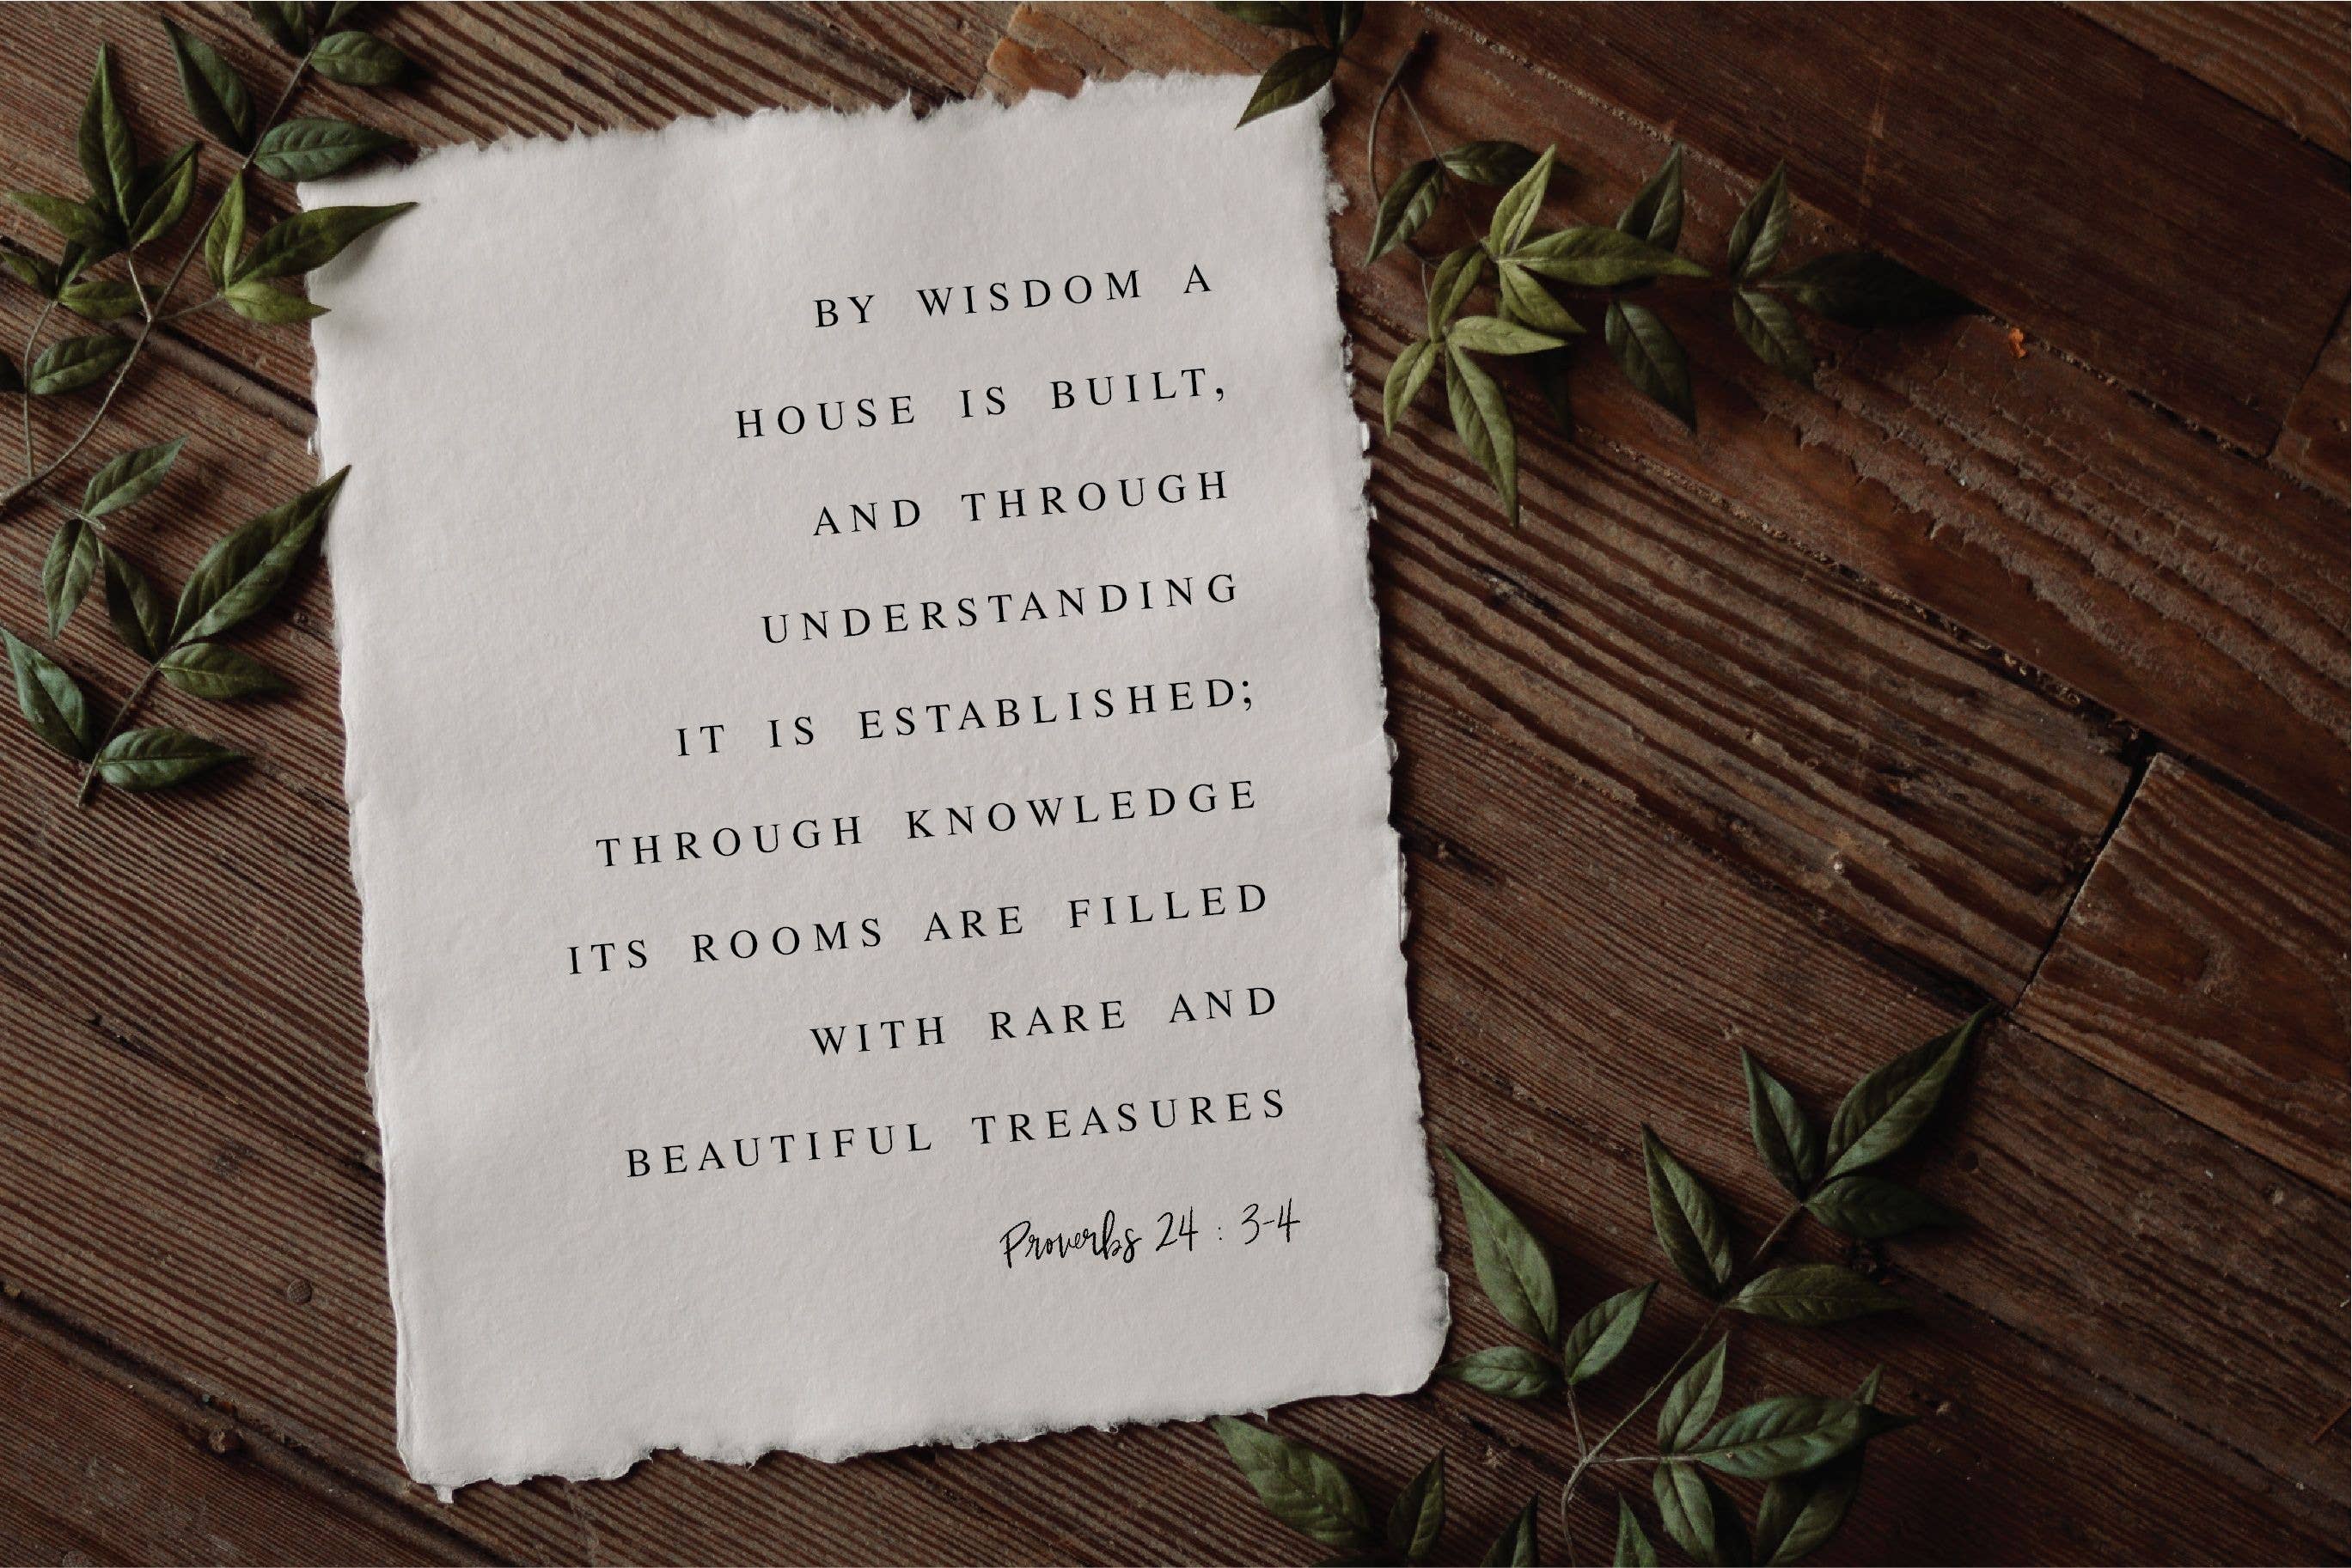 BY WISDOM A
HOUSE IS BUILT,
AND THROUGH
UNDERSTANDING
IT IS ESTABLISHED;
THROUGH KNOWLEDGE
ITS ROOMS ARE FILLED
WITH RARE AND
BEAUTIFUL TREASURES
Proverbs 24 : 3-4